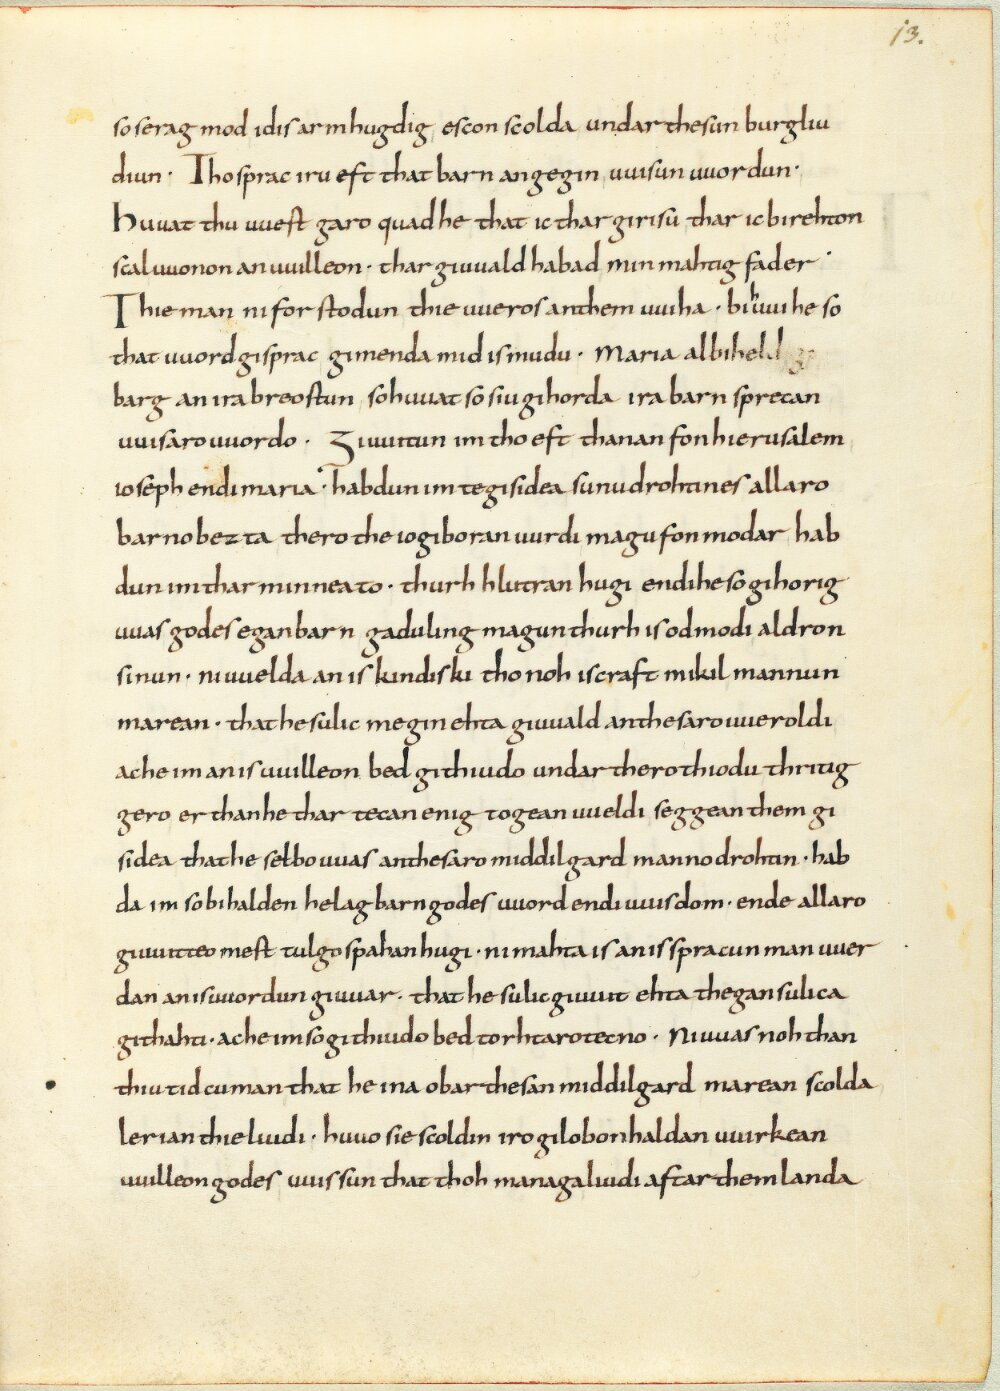 13.
so serag mod idis armhugdig escon scolda undar thesun burgliu
diun · Tho sprac iru eft that barn angegin uuisun uuordun ·
huuat thu uuest garo quad he that ic thar girisu thar ic bi rehton
scal uuonon an uuilleon · thar giuuald habad min mahtig fader ·
Thie man ni forstodun thie uueros an them uuiha · bihuui he so
that uuord gisprac gimenda mid is mudu · Maria al biheld
barg an ira breostun so huuat so siu gihorda ira barn sprecan
uuisaro uuordo · Giuuitun im tho eft thanan fon hierusalem
ioseph endi maria · habdun im te gisidea sunu drohtines allaro
barno bezta thero the io giboran uurdi magu fon modar hab
dun im thar minnea to · thurh hlutran hugi endi he so gihorig
uuas godes egan barn gaduling magun thurh is odmodi aldron
sinun · ni uuelda an is kindiski tho noh is craft mikil mannun
marean · that he sulic megin ehta giuuald an thesaro uueroldi
ac he im an is uuilleon bed githiudo undar thero thiodu thritig
gero er than he thar tecan enig togean uueldi seggean them gi
sidea that he selbo uuas an thesaro middilgard manno drohtin · hab
da im so bihalden helag barn godes uuord endi uuisdom · ende allaro
giuuitteo mest tulgo spahan hugi · ni mahta is an is spracun man uuer
dan an is uuordun giuuar · that he sulic giuuit ehta thegan sulica
githahti · ac he im so githiudo bed torhtaro tecno · Ni uuas noh than
thiu tid cuman that he ina obar thesan middilgard marean scolda
lerian thie liudi · huuo sie scoldin iro gilobon haldan uuirkean
uuilleon godes uuissun that thoh managa liudi aftar them landa